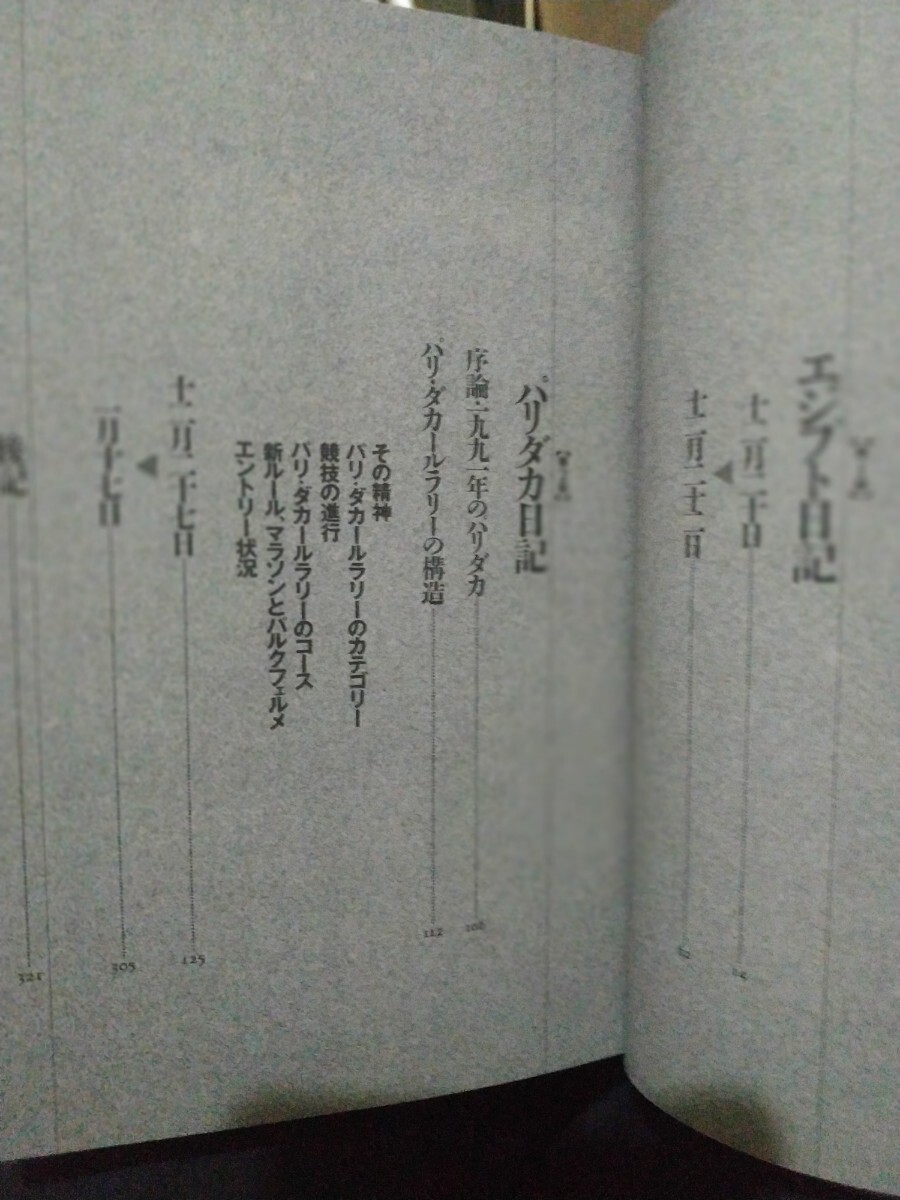 エジプト日記
十二月二十日
十二月二十二日
パリダカ日記
序論・一九九一年のパリダカ 106
パリ・ダカールラリーの構造 112
その精神
パリ・ダカールラリーのカテゴリー
競技の進行
パリ・ダカールラリーのコース
新ルール、マラソンとパルクフェルメ
エントリー状況
十二月二十七日 125
一月十七日 305
戦記 321